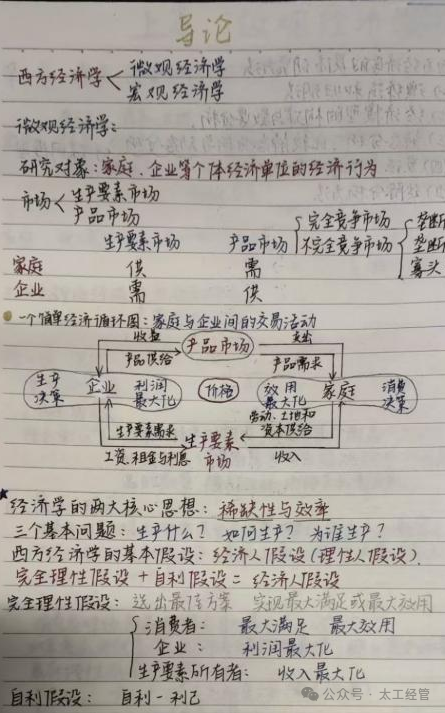 导论
西方经济学 微观经济学
宏观经济学
微观经济学:
研究对象:家庭、企业等个体经济单位的经济行为
市场 生产要素市场
产品市场
生产要素市场 产品市场 完全竞争市场
不完全竞争市场 垄断
垄断
寡头
家庭 供 需
企业 需 供
一个简单经济循环图:家庭与企业间的交易活动
收益 产品市场 支出
产品供给 产品需求
生产决策 企业 利润最大化 价格 效用最大化 家庭 消费决策
劳动、土地和资本供给
生产要素需求 生产要素市场
工资、租金与利息 收入
★经济学的两大核心思想:稀缺性与效率
三个基本问题:生产什么? 如何生产? 为谁生产?
西方经济学的基本假设:经济人假设(理性人假设).
完全理性假设+自利假设=经济人假设
完全理性假设:选出最佳方案 实现最大满足或最大效用
消费者: 最大满足 最大效用
企业: 利润最大化
生产要素所有者: 收入最大化
自利假设: 自利-利己
公众号·太工经管